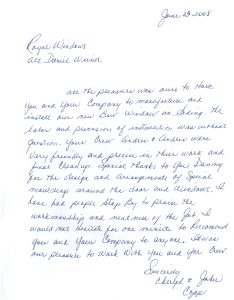 June 23-2008
Royal Windows
Att Daniel Wiener
All the pleasure was ours to have
you and your Company to manufacture and
install our new Bow Window on Siding. The
labor and precision of was without
question. Your Crew Andrew & Andrew were
very friendly and precise in their work and
final Cleanup. Special thanks to you Danny
for the design and arrangements of Special
mouldings around the door and Windows. I
have had people Stop By to praise the
workmanship and neatness of the Job. I would
not hesitate for one minute to Reccomend
you and your Company to anyone. It was
our pleasure to Work With you and your Crew
Sincerely
& John